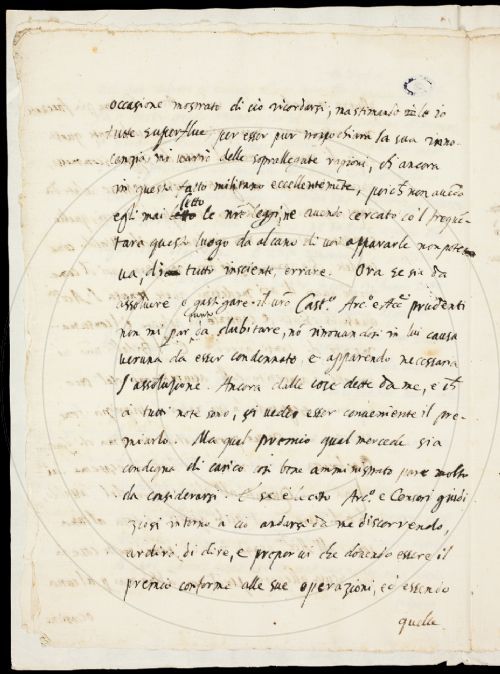 occasione mostrato di ciò ricordarsi, ma stimando io
tutte superflue per esser pur troppo chiara la sua inno-
cenzia mi varrò delle soprallegate ragioni, ch ancora
in questo fatto militano eccellentemte, poich non avedo
egli mai letto le nre leggi, ne avendo cercato col frequen
tare questo luogo da alcuno di voi appararle non pote
va, di tutto insciente, errare. Ora se sia da
assolvere o gastigare il vro Casto. Arco. e prudenti
non mi par punto da dubitare, nō ritrovandosi in lui causa
veruna da esser condennato e apparendo necessaria
l'assoluzione. Ancora dalle cose dette da me, e ch
a tutti note sono, si vede esser conveniente il pre-
miarlo. Ma qual premio qual mercede sia
condegna di carico così bene amministrato pare molto
da considerarsi. E se è lecito Arco. e Censori giudi
ziosi intorno a ciò andarsi da me discorrendo,
ardirò di dire, e proporvi che dovendo essere il
premio conforme alle sue operazioni, ed essendo
quelle